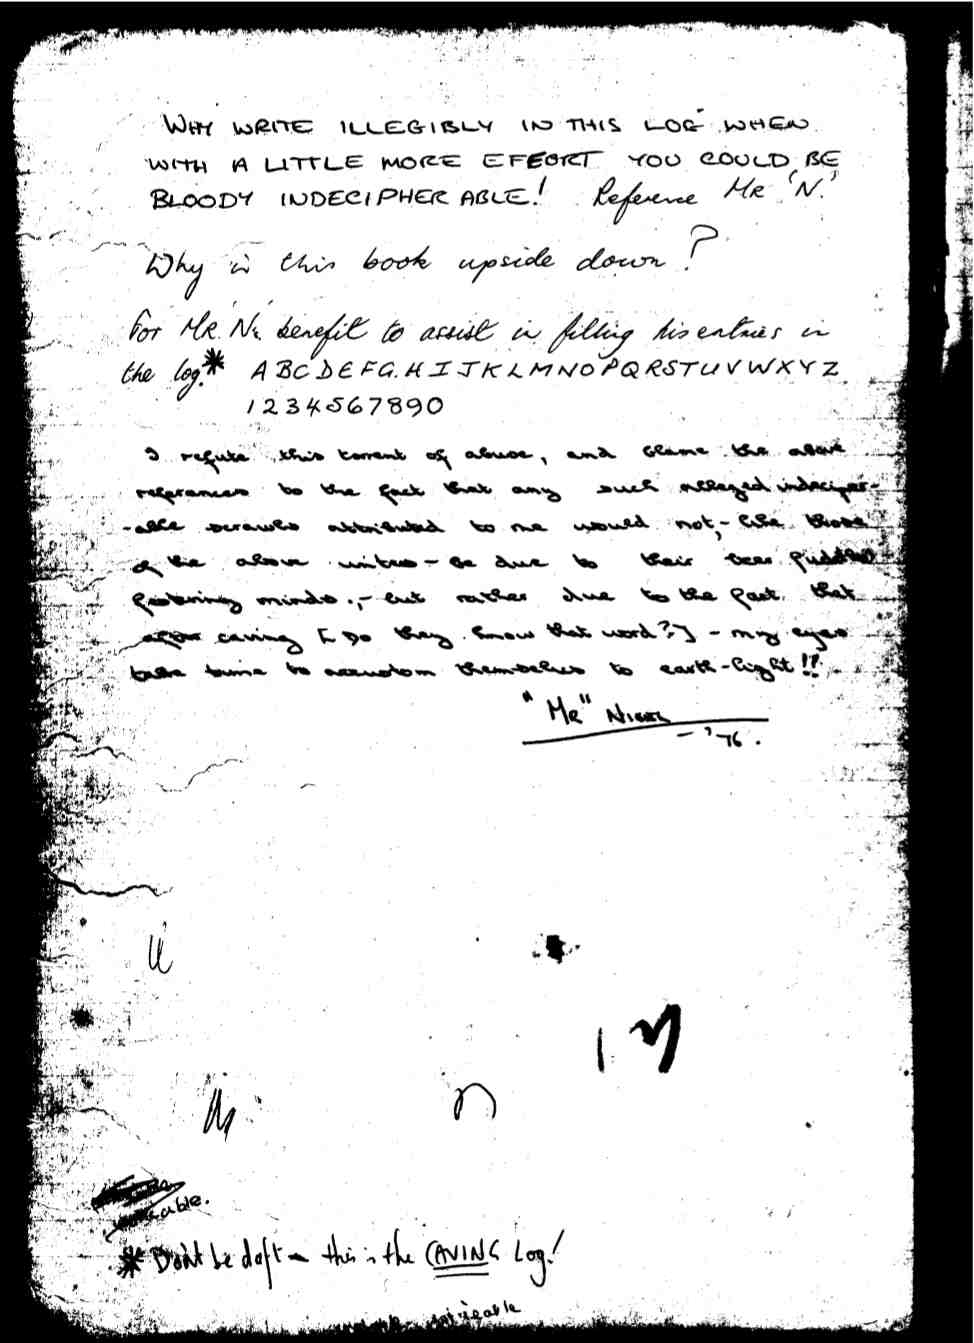 WHY WRITE ILLEGIBLY IN THIS LOG WHEN
WITH A LITTLE MORE EFFORT YOU COULD BE
BLOODY INDECIPHERABLE! Reference MR 'N.'
Why is this book upside down?
For MR. 'N's benefit to assist in filling his entries in
the log.* A B C D E F G. H I J K L M N O P Q R S T U V W X Y Z
1 2 3 4 5 6 7 8 9 0
I refute this torrent of abuse, and blame the above
references to the fact that any such alleged indecipher-
-able scrawls attributed to me would not, - like those
of the above writers - be due to their beer fuddled
festering minds., - but rather due to the fact that
after caving [Do they know that word?] - my eyes
take time to accustom themselves to earth-light!!
"MR" NIGEL
- '76.
able.
* Don't be daft - this is the CAVING Log!